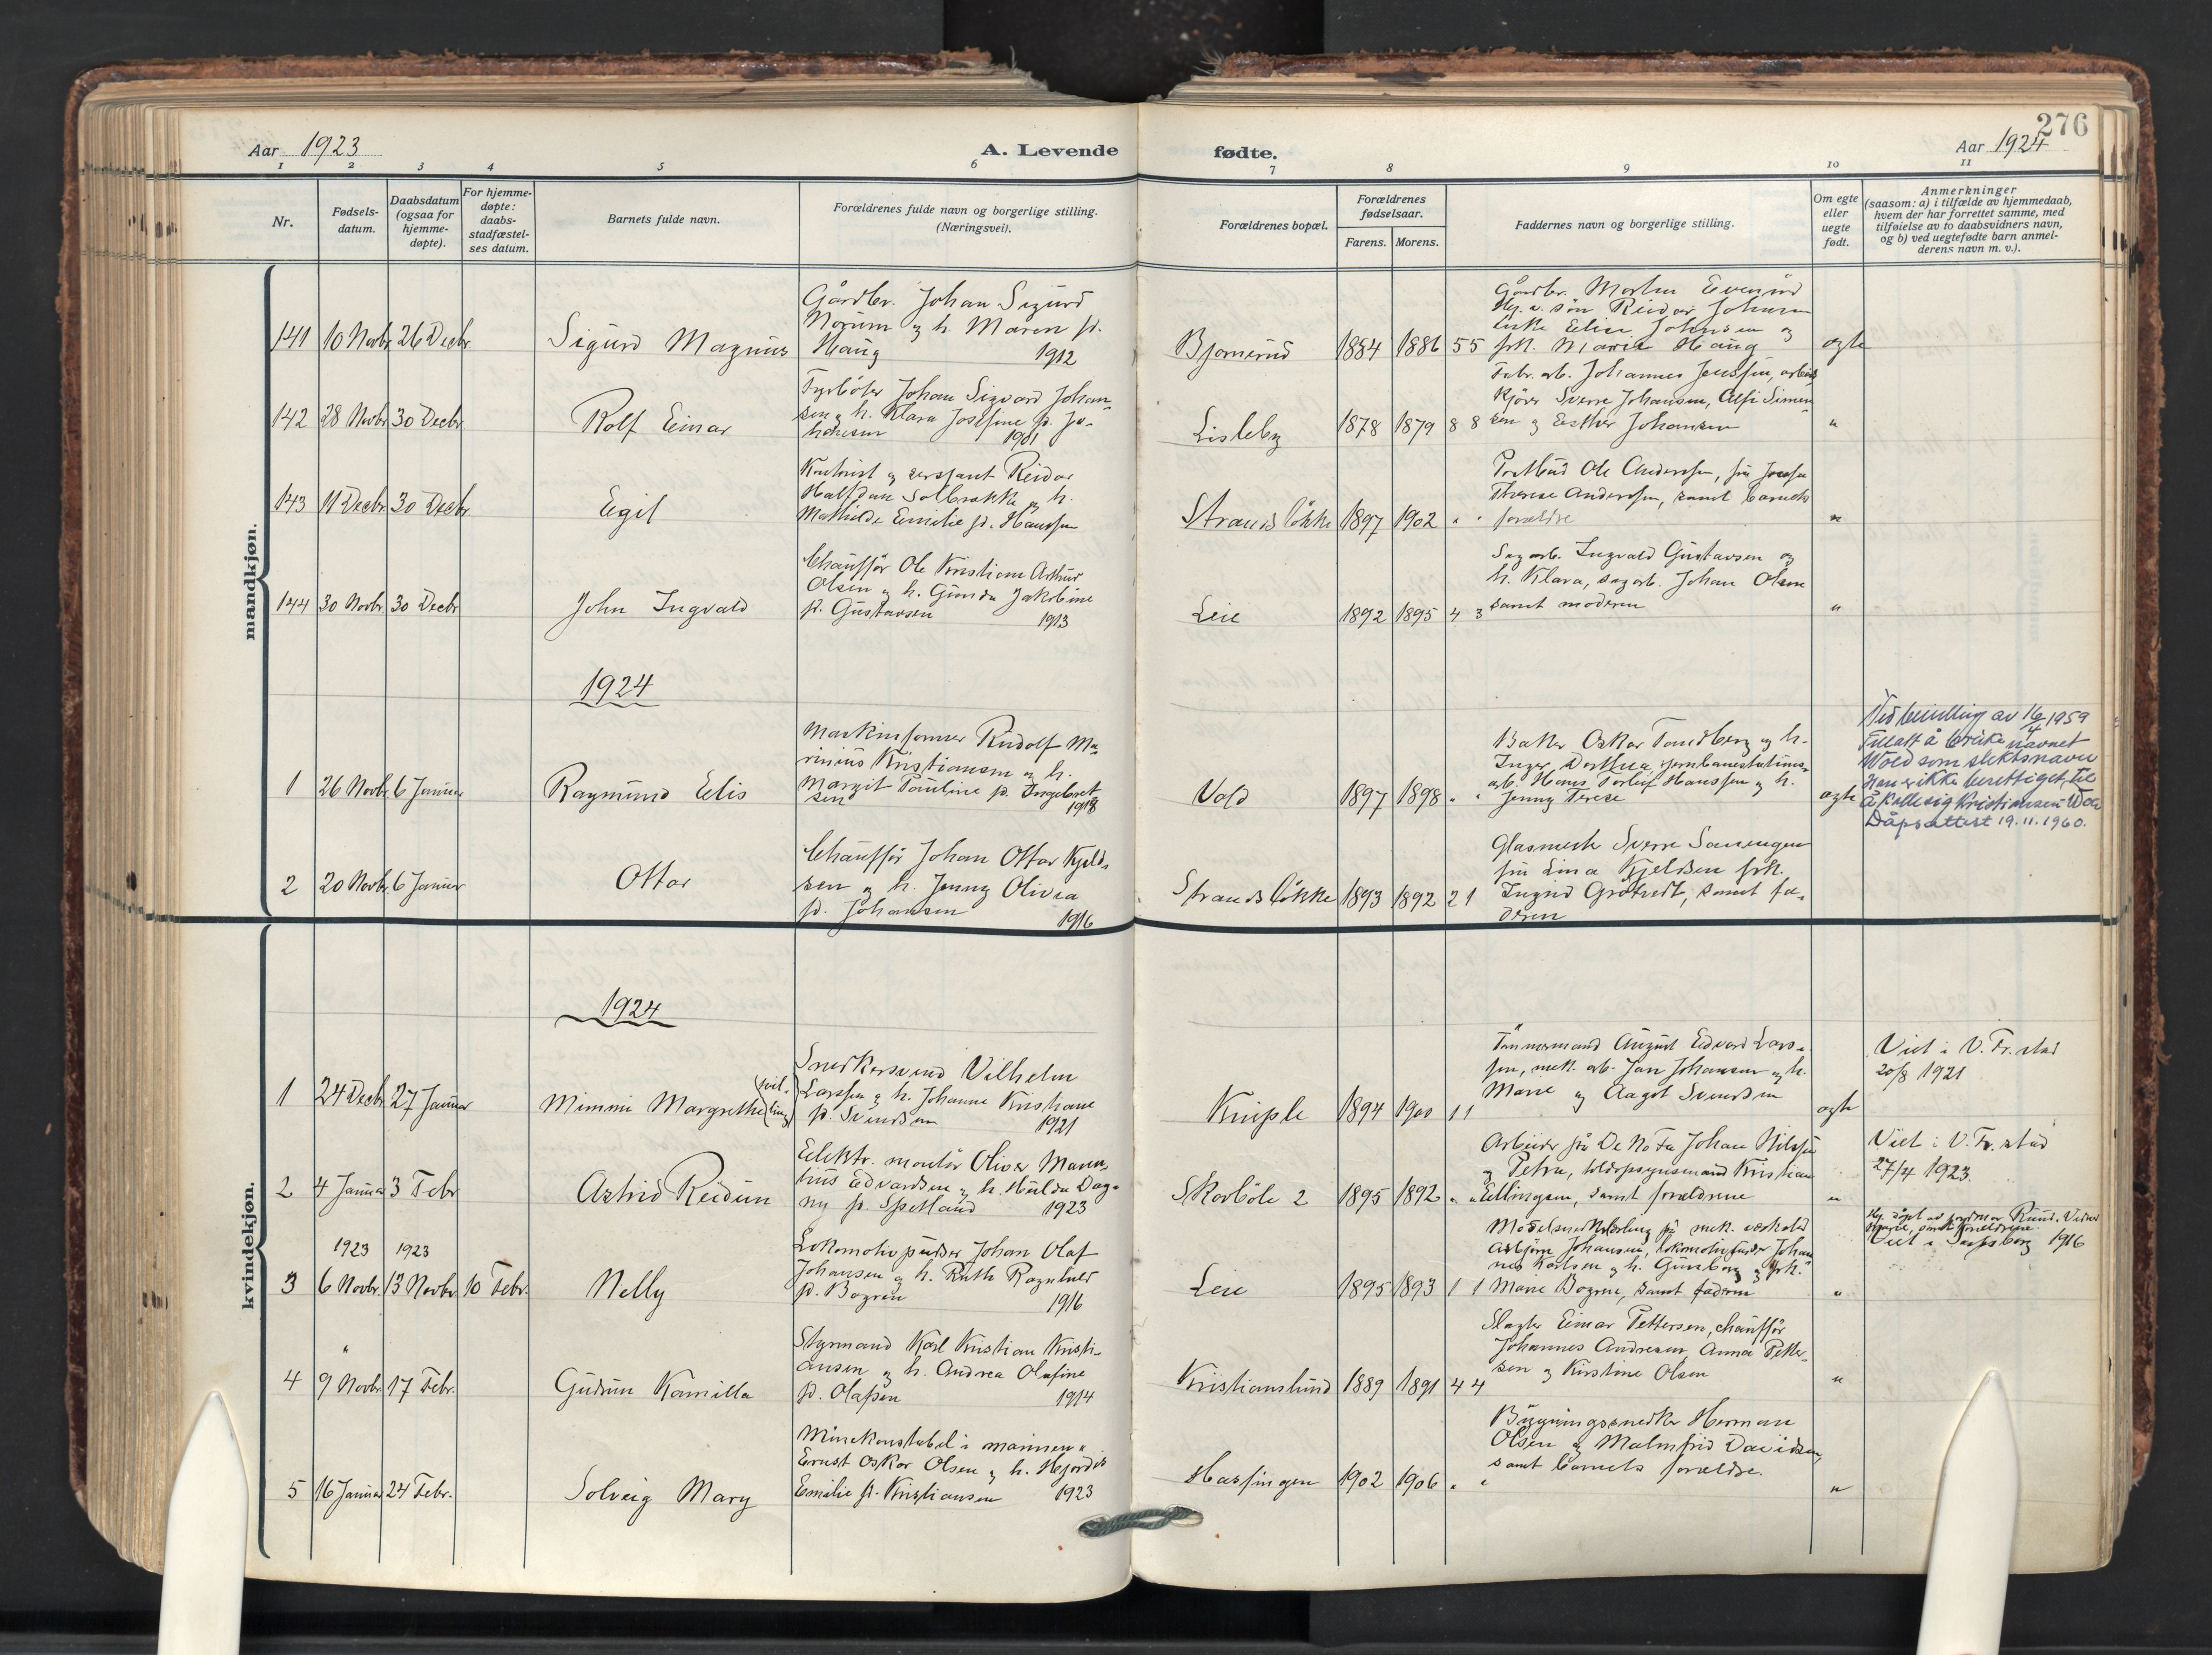 276
Aar 1923
A. Levende
fødte.
Aar 1924
1 2 3 4 5 6 7 8 9 10 11
Nr.
Fødsels-
datum.
Daabsdatum
(ogsaa for
hjemme-
døpte).
For hjemme-
døpte:
daabs-
stadfæstel-
ses datum.
Barnets fulde navn.
Forældrenes fulde navn og borgerlige stilling.
(Næringsvei).
Forældrenes bopæl.
Forældrenes
fødselsaar.
Farens. Morens.
Faddernes navn og borgerlige stilling.
Om egte
eller
uegte
født.
Anmerkninger
(saasom: a) i tilfælde av hjemmedaab,
hvem der har forrettet samme, med
tilføielse av to daabsvidners navn,
og b) ved uegtefødte barn anmel-
derens navn m. v.).
mandkjøn.
141 10 Novbr. 26 Decbr.
Sigurd Magnus
Gårdbr. Johan Sigurd
Norum og h. Maren f.
Haug 1912
Bjørnerud 1884 1886 5 5
Gårdbr. Martin Evenrud
Hg. v. søn Reidar Johansen
Enke Elise Johnsen og
frk. Marie Haug
egte
142 28 Novbr. 30 Decbr.
Rolf Einar
Fyrbøter Johan Sigvard Johan-
sen og h. Klara Josefine f. Jo-
hansen 1901
Lisleby 1878 1879 8 8
Fabr. arb. Johannes Jenssen, arbeids
kjører Sverre Johansen, Alfi Simen-
sen og Esther Johansen
"
143 11 Decbr. 30 Decbr.
Egil
Kontorist og sersjant Reidar
Halfdan Solbrække og h.
Mathilde Emilie f. Hanssen
Strandsløkke 1897 1902 " "
Postbud Ole Anderssen, fru Josefa
Therese Anderssen, samt barnets
forældre
"
144 30 Novbr. 30 Decbr.
John Ingvald
Chauffør Ole Kristian Arthur
Olsen og h. Gunda Jakobine
f. Gustavsen 1913
Leie 1892 1895 4 3
Sagarb. Ingvald Gustavsen og
h. Klara, sagarb. Johan Olsen
samt moderen
"
1924
1 26 Novbr. 6 Januar
Raymund Elis
Maskinformer Rudolf Ma-
rinius Kristiansen og h.
Margit Pauline f. Ingebret-
sen 1918
Vold 1897 1898 " "
Baker Oskar Tandberg og h.
Inger Dorthea, jernbanestations-
arb. Hans Torleif Hanssen og h.
Jenny Terese
egte
Ved bevilling av 16/4 1959
tillatt å bruke navnet
Wold som slektsnavn
Han er ikke berettiget til
å kalle sig Kristiansen Wold
Dåpsattest 19.11.1960.
2 20 Novbr. 6 Januar
Ottar
Chauffør Johan Ottar Kjeld-
sen og h. Jenny Olivia
f. Johansen 1916
Strandsløkke 1893 1892 2 1
Glasmester Sverre
fru Lina Kjeldsen frk.
Ingrid Gråtvedt, samt fa-
deren
kvindekjøn.
1924
1 24 Decbr. 27 Januar
Mimmi Margrethe (tvil-
ling)
Snedkersvend Vilhelm
Larssen og h. Johanne Kristiane
f. Svendsen 1921
Kniple 1894 1900 1 1
Tømmermand August Edvard Lars-
sen, mek. arb. Jan Johansen og h.
Marie og Aagot Svendsen
egte
Viet i V. Fr.stad
20/8 1921
2 4 Januar 3 Febr
Astrid Reidun
Elektr. montør Oliver Marin-
tius Edvardsen og h. Hulda Dag-
ny f. Spetland 1923
Skovbøle 2 1895 1892 " "
Arbeider på De No Fa Johan Nilssen
og Petra, toldopsynsmand Kristian
Ellingsen, samt forældrene
"
Viet i V. Fr.stad
27/4 1923.
1923 1923
3 6 Novbr. 13 Novbr. 10 Febr.
Nelly
Lokomotivpudser Johan Olaf
Johansen og h. Ruth Ragnhild
f. Bogren 1916
Leie 1895 1893 1 1
Modelsnedkerlærling på mek. verksted
Asbjørn Johansen, lokomotivfyrbøter Johan-
nes Karlsen og h. Gunborg og frk.
Marie Bogren, samt faderen
"
Hj. døpt av jordmor Ruud. Vidner
samt forældrene.
Viet i Sarpsborg 1916
"
4 9 Novbr. 17 Febr.
Gudrun Kamilla
Styrmand Karl Kristian Kristi-
ansen og h. Andrea Olafine
f. Olafsen 1914
Kristianslund 1889 1891 4 4
Slagter Einar Pettersen, chauffør
Johannes Andresen, Anna Petter-
sen og Kirstine Olsen
"
5 16 Januar 24 Febr.
Solveig Mary
Minekonstabel i marinen
Ernst Oskar Olsen og h. Hjørdis
Emilie f. Kristiansen 1923
Hassingen 1902 1906 " "
Bygningssnedker Herman
Olsen og Malmfrid Davidsen,
samt barnets forældre.
"